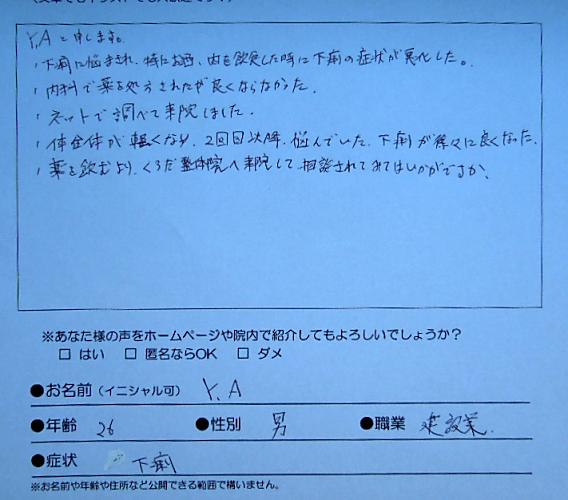 Y,Aと申します。
・下痢に悩まされ、特にお酒、肉を飲食した時に下痢の症状が悪化した。
・内科で薬を処方されたが良くならなかった。
・ネットで調べて来院しました。
・体全体が軽くなり、2回目以降、悩んでいた、下痢が徐々に良くなった。
・薬を飲むより、くろだ整体院へ来院して相談されてみてはいかがですか。
※あなた様の声をホームページや院内で紹介してもよろしいでしょうか？
□ はい □ 匿名ならOK □ ダメ
●お名前（イニシャル可） Y,A
●年齢 26 ●性別 男 ●職業 建設業.
●症状 下痢
※お名前や年齢や住所など公開できる範囲で構いません。